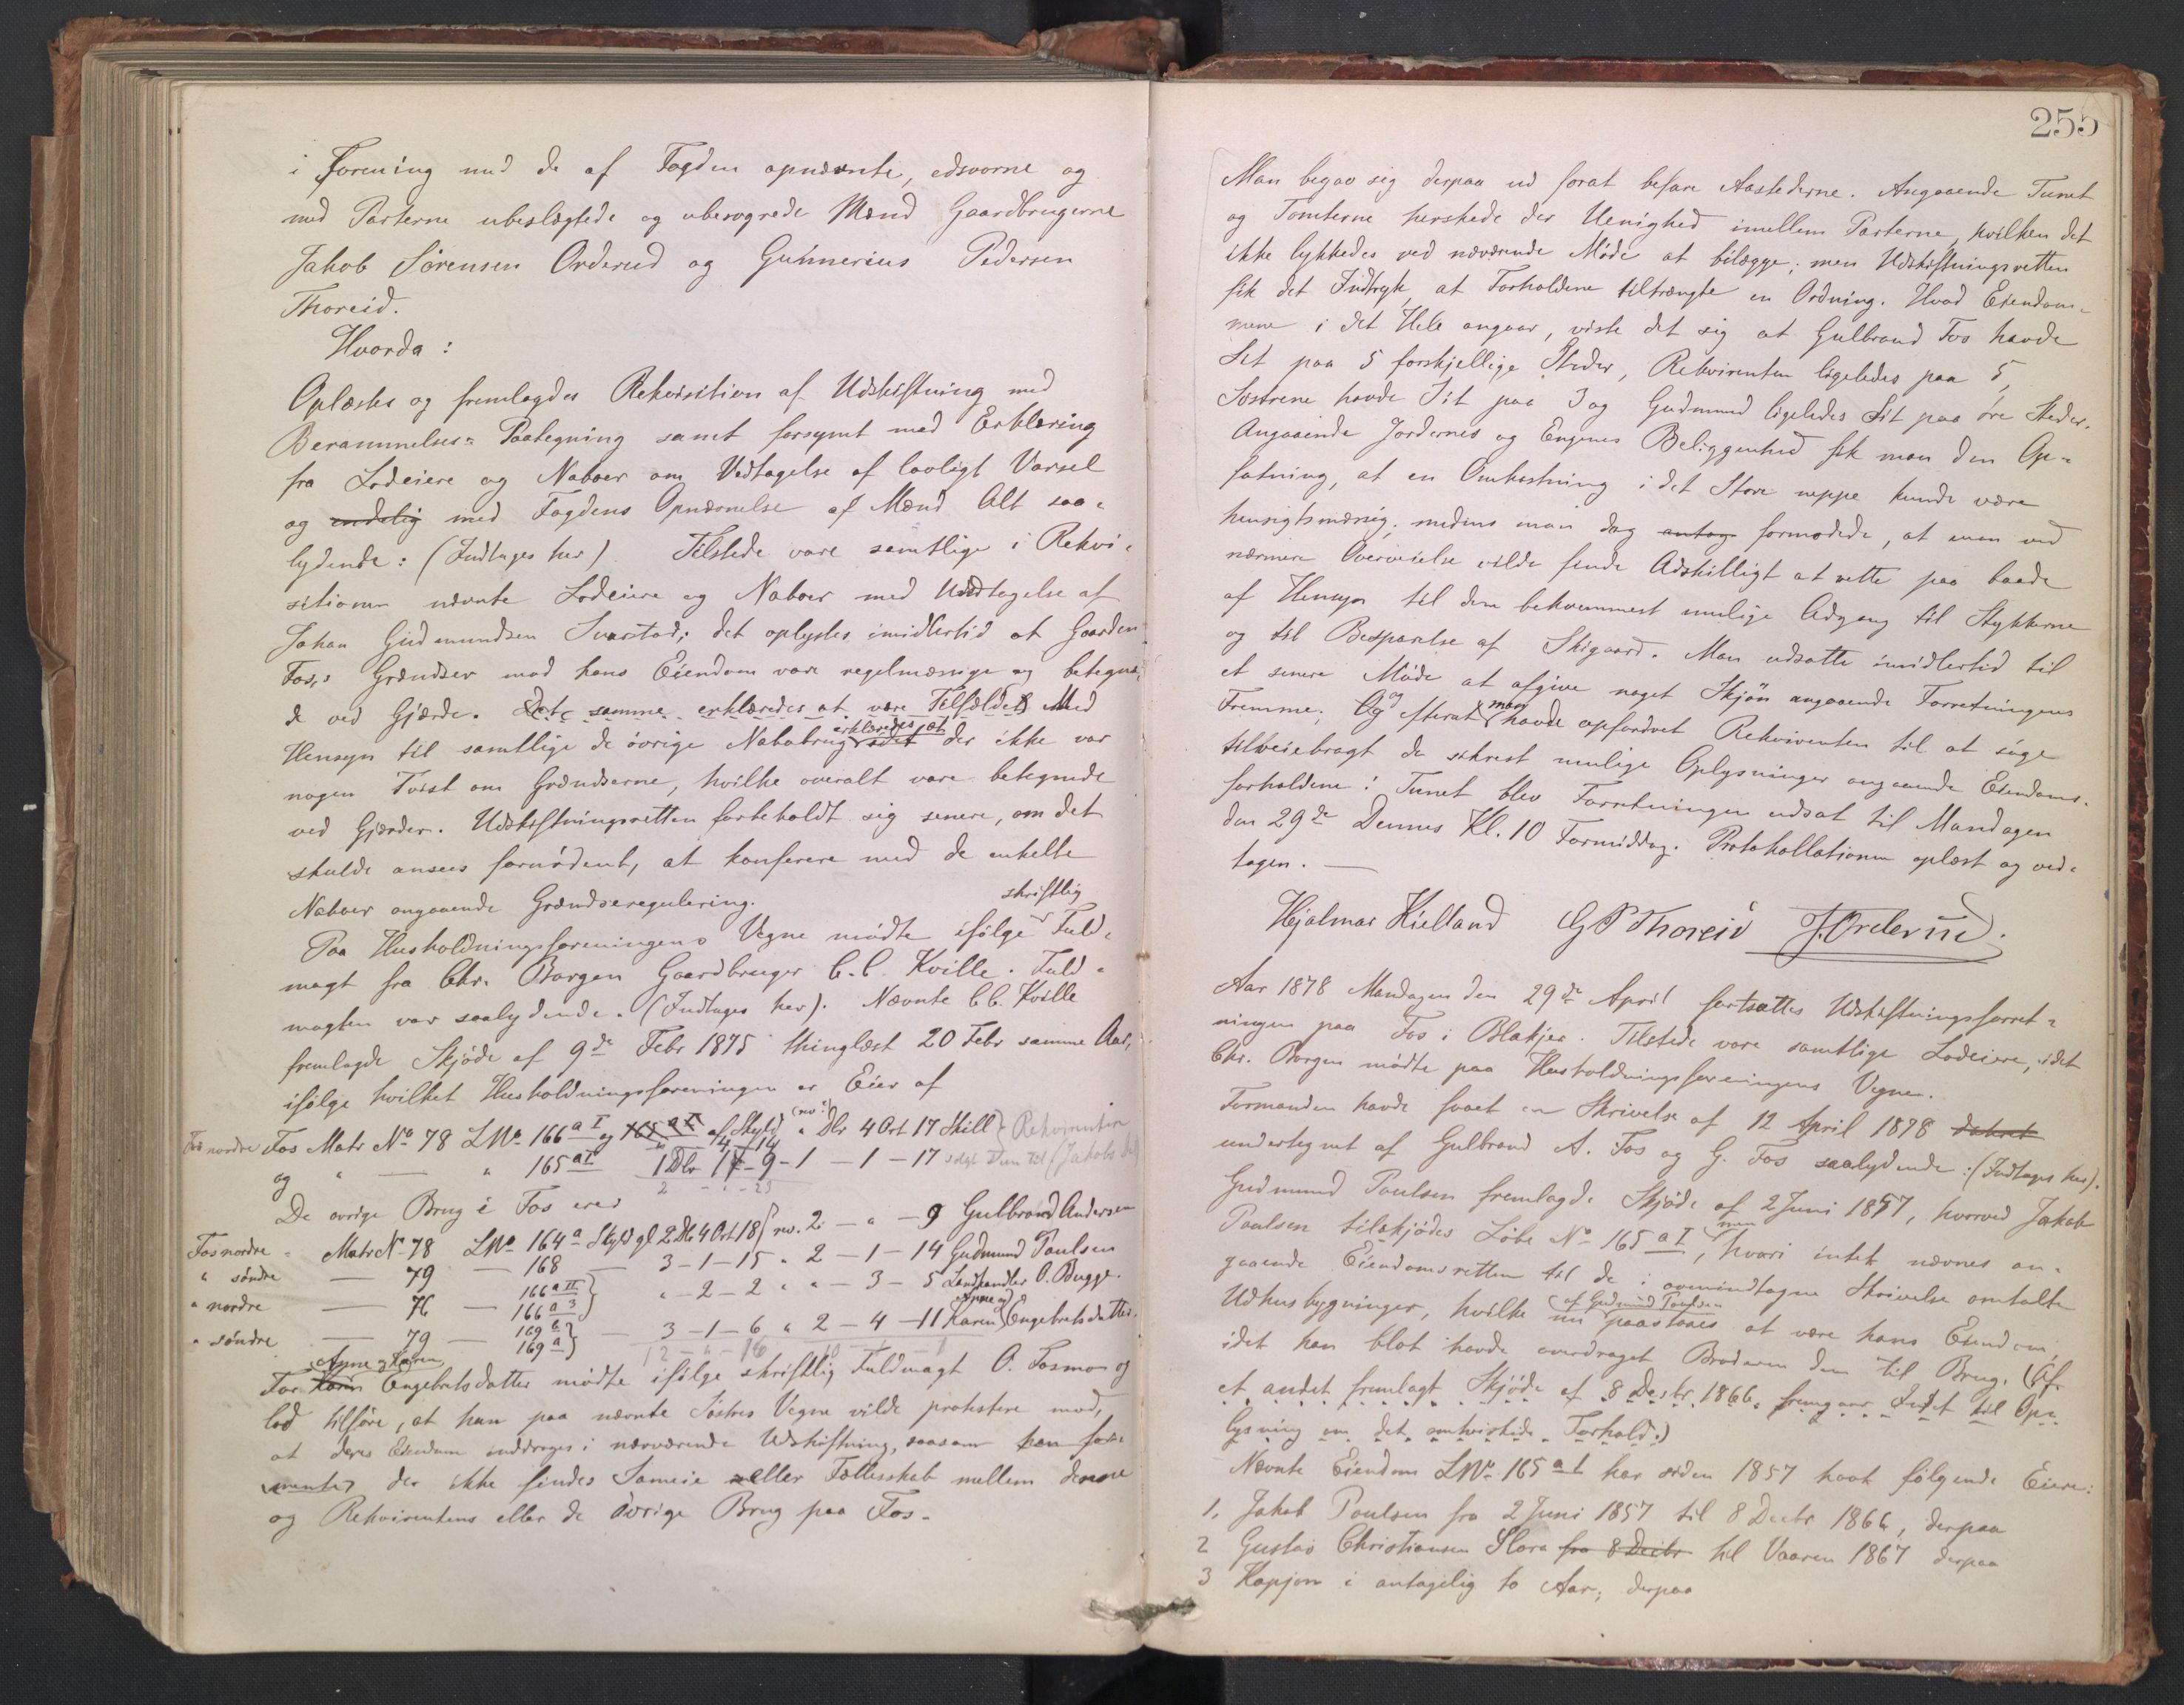 i Forening med de af Fogden opnævnte, edsvorne og
med Parterne ubeslægtede og ubesvogrede Mænd Gaardbrugerne
Jakob Sørensen Orderud og Gunnerius Pedersen
Thoreid.
Hvorda:
Oplæstes og fremlagdes Rekvisition af Udskiftning med
Berammelses- Paategning samt forsynt med Erklæring
fra Lodeiere og Naboer om Vedtagelse af lovligt Varsel
og endelig med Fogdens Opnævnelse af Mænd Alt saa-
lydende: (Indtages her) Tilstede vare samtlige i Rekvi-
sitionen nævnte Lodeiere og Naboer med Undtagelse af
Johan Gudmundsen Svarstad; det oplystes imidlertid at Gaarden
Fos,s Grændser mod hans Eiendom vare regelmæssige og betegne-
de ved Gjærde. Det samme erklæredes at være Tilfældet Med
Hensyn til samtlige de øvrige Nabobrug erklæredes, at der ikke var
nogen Tvist om Grændserne, hvilke overalt vare betegnede
ved Gjærder. Udskiftningsretten forbeholdt sig senere, om det
skulde ansees fornødent, at konferere med de enkelte
Naboer angaaende Grændseregulering.
Paa Husholdningsforeningens Vegne mødte ifølge skriftlig Fuld-
magt fra Chr. Borgen Gaardbruger C. C. Kville. Fuld-
magten var saalydende. (Indtages her). Nævnte C C. Kville
fremlagde Skjøde af 9de Febr 1875 thinglæst 20 Febr samme Aar,
ifølge hvilket Husholdningsforeningen er Eier af
Fos nordre Fos Matr No 78 LNo 166 a I og 165 a I af Skyld (rev:) " Dlr 4 Ort 17 Skill Rekvirenten
og " — " 165 a I 1 Dlr 1 - 9 - 1 - 1 - 17 solgt Jakob
De øvrige Brug i Fos ere:
Fos nordre - Matr No 78 LNo 164 a Skyld gl 2 Dlr 4 Ort 18 rev. 2 — " — 9 Gulbrand Andersen
" søndre — 79 — 168 — 3-1-15 " 2-1-14 Gudmund Paulsen
" nordre — 76 — 166 a II 166 a 3 " -2-2 " " -3-5 Landhandler O. Bugge.
" søndre — 79 — 169 b 169 a — 3-1-6 " 2-4-11 Anne og Karen Engebretsdatter.
12 - " - 16
For Karen Anne og Karen Engebretsdatter mødte ifølge skriftlig Fuldmagt O. Fosmon og
lod tilføre, at han paa nævnte Søstres Vegne vilde protestere mod,
at deres Eiendom inddroges i nærværende Udskiftning, saasom han for-
mente, der ikke findes Sameie eller Fællesskab mellem denne
og Rekvirentens eller de øvrige Brug paa Fos.
255
Man begav sig derpaa ud forat befare Aastederne. Angaaende Tunet
og Tomterne herskede der Uenighed imellem Parterne, hvilken det
ikke lykkedes ved nærværende Møde at bilægge; men Udskiftningsretten
fik det Indtryk, at Forholdene tiltrængte en Ordning. Hvad Eiendom-
mene i det Hele angaar, viste det sig at Gulbrand Fos havde
Sit paa 5 forskjellige Steder, Rekvirenten ligeledes paa 5,
Søstrene havde Sit paa 3 og Gudmund ligeledes Sit paa tre Steder.
Angaaende Jordernes og Engenes Beliggenhed fik man den Op-
fatning, at en Omkastning i det Store neppe kunde være
hensigtsmæssig; medens man dog antog formodede, at man ved
nærmere Overveielse vilde finde Adskilligt at rette paa baade
af Hensyn til den bekvemmest mulige Adgang til Stykkerne
og til Besparelse af Skigaard. Man udsatte imidlertid til
et senere Møde at afgive noget Skjøn angaaende Forretningens
Fremme; og efterat man havde opfordret Rekvirenten til at søge
tilveiebragt de sikrest mulige Oplysninger angaaende Eiendoms-
forholdene i Tunet blev Forretningen udsat til Mandagen
den 29de Dennes Kl. 10 Formiddag. Protokollationen oplæst og ved-
tagen. —
Hjalmar Kielland G P Thoreid J. Orderud.
Aar 1878 Mandagen den 29de April fortsattes Udskiftningsforret-
ningen paa Fos i Blakjer. Tilstede vare samtlige Lodeiere, idet
Chr. Borgen mødte paa Husholdningsforeningens Vegne.
Formanden havde faaet en Skrivelse af 12 April 1878 dateret
undertegnet af Gulbrand A. Fos og G. Fos saalydende: (Indtages her).
Gudmund Paulsen fremlagde Skjøde af 2 Juni 1857, hvorved Jakob
Paulsen tilskjødes Løbe No 165 a I, men hvori intet nævnes an-
gaaende Eiendomsretten til de i ovenindtagne Skrivelse omtalte
Udhusbygninger, hvilke nu af Gudmund Paulsen paastaaes at være hans Eiendom,
idet han blot havde overdraget Broderen dem til Brug. (Af
et andet fremlagt Skjøde af 8 Decbr. 1866 fremgaar Intet til Op-
lysning om det omtvistede Forhold.)
Nævnte Eiendom LNo 165 a I har siden 1857 havt følgende Eiere:
1. Jakob Poulsen fra 2 Juni 1857 til 8 Decbr 1866, derpaa
2 Gustav Christiansen Slora fra 8 Decbr til Vaaren 1867 derpaa
3 Kapjon i antagelig to Aar; derpaa